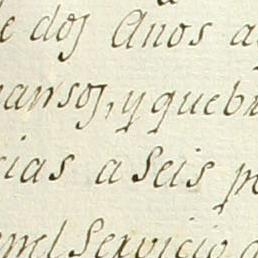 de dos Anos a
mansos, y queb
cias a Seis p
en el Servicio